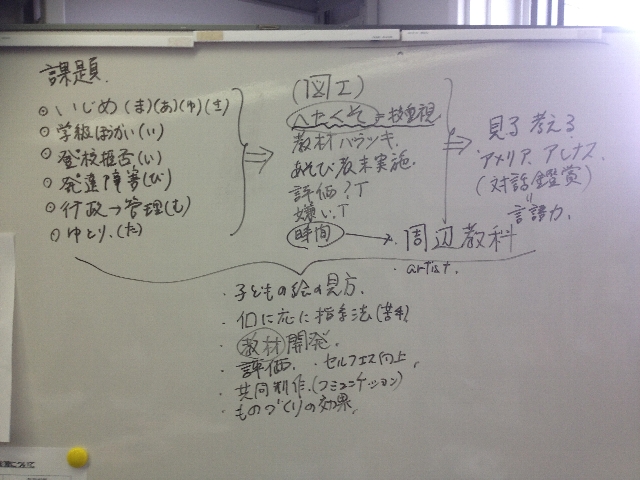 課題.
◎ いじめ (ま)(あ)(ゆ)(さ)
◎ 学級ほうかい (い)
◎ 登校拒否 (い)
◎ 発達障害 (び)
◎ 行政→管理 (む)
◎ ゆとり. (た)
(図工)
へたくそ 技重視
教材バラツキ.
あそび 教未実施.
評価?T
嫌い.T
時間 → 周辺教科
・artist.
見る 考える
アメリア アレナス.
(対話鑑賞)
〃
言語力.
・子どもの絵の見方.
・個に応に指導法(苦手)
・教材開発.
・評価. ・セルフエス向上.
・共同制作.(コミュニケーション)
・ものづくりの効果.